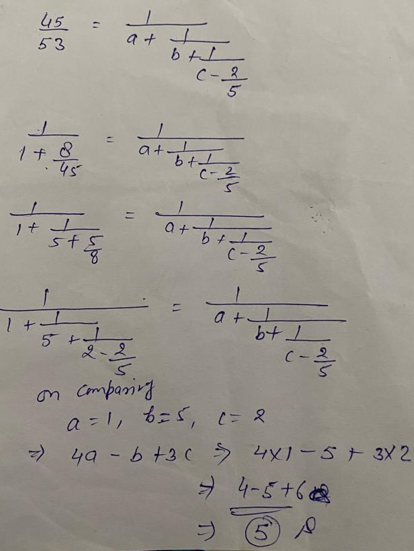 45/53 = 1/(a + 1/(b + 1/(c - 2/5)))
1/(1 + 8/45) = 1/(a + 1/(b + 1/(c - 2/5)))
1/(1 + 1/(5 + 5/8)) = 1/(a + 1/(b + 1/(c - 2/5)))
1/(1 + 1/(5 + 1/(2 - 2/5))) = 1/(a + 1/(b + 1/(c - 2/5)))
on comparing
a = 1, b = 5, c = 2
⇒ 4a - b + 3c ⇒ 4x1 - 5 + 3x2
⇒ 4-5+6
⇒ 5